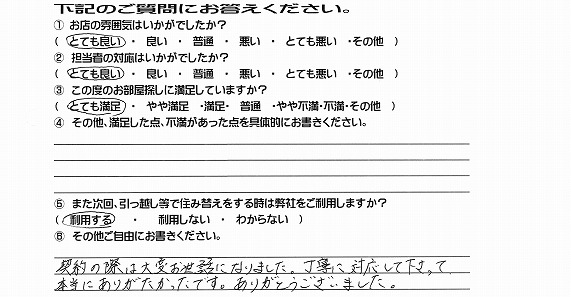 下記のご質問にお答えください。
① お店の雰囲気はいかがでしたか?
( とても良い ・ 良い ・ 普通 ・ 悪い ・ とても悪い ・その他 )
② 担当者の対応はいかがでしたか?
( とても良い ・ 良い ・ 普通 ・ 悪い ・ とても悪い ・その他 )
③ この度のお部屋探しに満足していますか?
( とても満足 ・ やや満足 ・満足・ 普通 ・やや不満・不満・その他 )
④ その他、満足した点、不満があった点を具体的にお書きください。
⑤ また次回、引っ越し等で住み替えをする時は弊社をご利用しますか?
( 利用する ・ 利用しない ・ わからない )
⑥ その他ご自由にお書きください。
契約の際は大変お世話になりました。丁寧に対応して下さって
本当にありがたかったです。ありがとうございました。